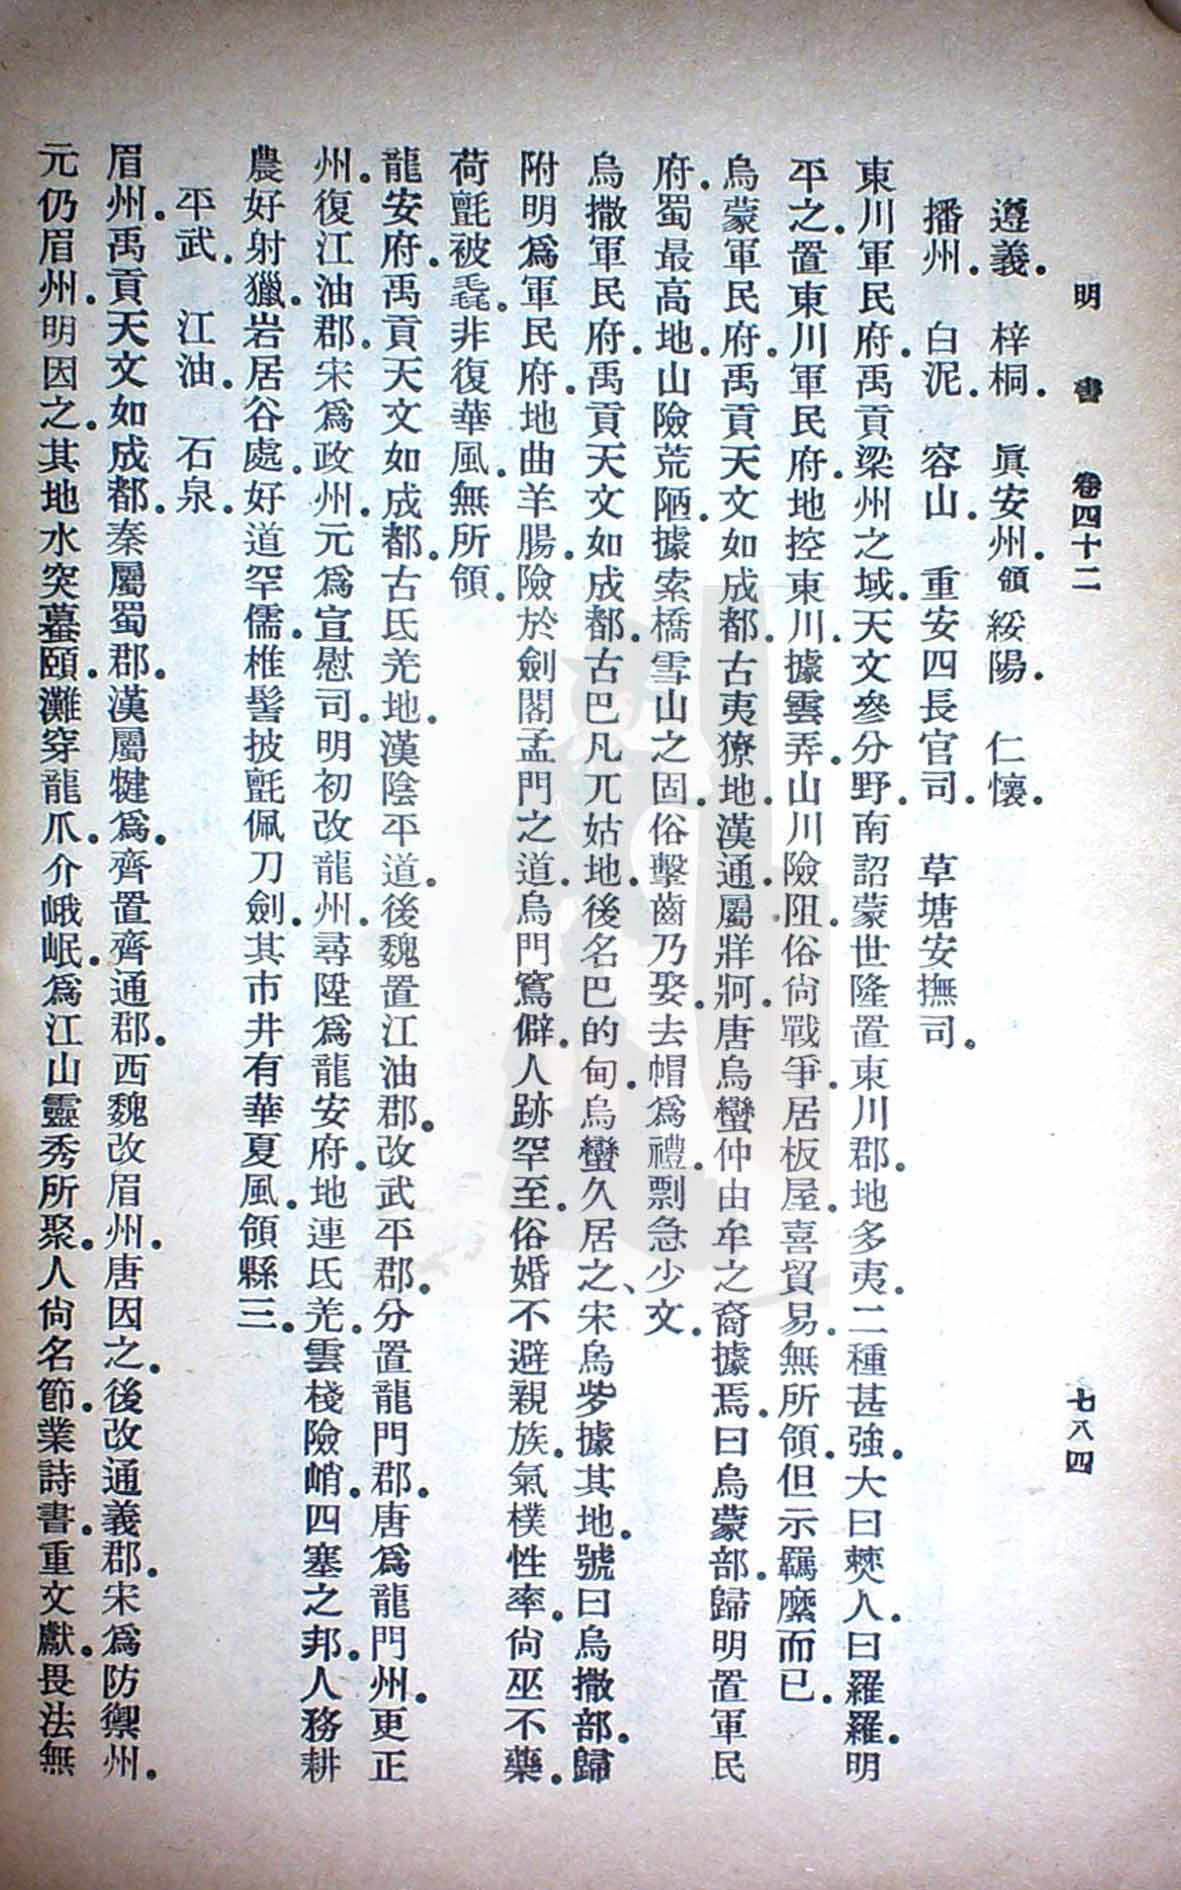 明書 卷四十二 七八四
遵義。梓桐。眞安州。領綏陽。仁懷。
播州。白泥。容山。重安四長官司。草塘安撫司。
東川軍民府。禹貢梁州之域。天文參分野。南詔蒙世隆置東川郡。地多夷。二種甚強。大曰僰人。曰羅羅。明
平之。置東川軍民府。地控東川。據雲弄。山川險阻。俗尙戰爭。居板屋。喜貿易。無所領。但示羈縻而已。
烏蒙軍民府。禹貢天文如成都。古夷獠地。漢通。屬牂牁。唐烏蠻仲由牟之裔據焉。曰烏蒙部。歸明置軍民
府。蜀最高地。山險荒陋。據索橋雪山之固。俗擊齒乃娶。去帽爲禮。剽急少文。
烏撒軍民府。禹貢天文如成都。古巴凡兀姑地。後名巴的甸。烏蠻久居之、宋烏㱔據其地。號曰烏撒部。歸
附明爲軍民府。地曲羊腸。險於劍閣孟門之道。烏門窵僻。人跡罕至。俗婚不避親族。氣樸性率。尙巫不藥。
荷氈被毳。非復華風。無所領。
龍安府。禹貢天文如成都。古氐羌地。漢陰平道。後魏置江油郡。改武平郡。分置龍門郡。唐爲龍門州。更正
州。復江油郡。宋爲政州。元爲宣慰司。明初改龍州。尋陞爲龍安府。地連氐羌。雲棧險峭。四塞之邦。人務耕
農好射獵。岩居谷處。好道罕儒。椎髻披氈佩刀劍。其市井有華夏風。領縣三。
平武。江油。石泉。
眉州。禹貢天文如成都。秦屬蜀郡。漢屬犍爲。齊置齊通郡。西魏改眉州。唐因之。後改通義郡。宋爲防禦州。
元仍眉州。明因之。其地水突蟇頤。灘穿龍爪。介峨岷。爲江山靈秀所聚。人尙名節。業詩書。重文獻。畏法無